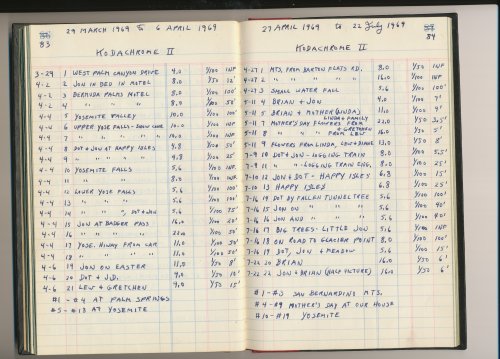 29 MARCH 1969 to 6 APRIL 1969
83
KODACHROME II
3-29 1 WEST PALM CANYON DRIVE 4.0 1/100 INF
4-2 2 JON IN BED IN MOTEL 8.0 1/50 12'
4-2 3 BERMUDA PALMS MOTEL 8.0 1/100 100'
4-2 4 " " " 8.0 1/100 50'
4-4 5 YOSEMITE VALLEY 10.0 1/100 100'
4-4 6 UPPER YOSE FALLS - SNOW CONE 10.0 1/100 INF
4-4 7 " " " " " 16.0 1/100 INF
4-4 8 DOT & JON AT HAPPY ISLES 4.8 1/100 50'
4-4 9 " " " " " 4.8 1/100 25'
4-4 10 YOSEMITE FALLS 5.6 1/100 INF
4-4 11 " " 8.0 1/100 INF
4-4 12 LOWER YOSE FALLS 5.6 1/100 100'
4-4 13 " " " 5.6 1/100 100'
4-4 14 " " ", DOT & JON 5.6 1/100 75'
4-4 15 JON AT BADGER PASS 16.0 1/100 20'
4-4 16 " " " " 22.0 1/100 50'
4-4 17 YOSE. HIWAY FROM CAR 11.0 1/100 50'
4-4 18 " " " " 11.0 1/100 50'
4-6 19 JON ON EASTER 11.0 1/50 8'
4-6 20 DOT & J.D. 4.0 1/50 10'
4-6 21 LEW & GRETCHEN 4.0 1/50 15'
#1 - #4 AT PALM SPRINGS
#5 - #18 AT YOSEMITE
27 APRIL 1969 to 22 July 1969
84
KODACHROME II
4-27 1 MTS, FROM BARTON FLATS RD. 8.0 1/50 INF
4-27 2 " " " " " 16.0 1/100 INF
4-27 3 SMALL WATER FALL 5.6 1/100 100'
5-11 4 BRIAN & JON 4.0 1/100 7'
5-11 5 BRIAN & MOTHER (LINDA) 11.0 1/100 9'
5-11 7 MOTHER'S DAY FLOWERS FROM LINDA & FAMILY 22.0 1/50 3.5'
5-11 8 " " " FROM LEW & GRETCHEN 16.0 1/50 5'
5-11 9 FLOWERS FROM LINDA, LEW & DIANE 13.0 1/50 8'
7-9 10 DOT & JON - LOGGING TRAIN 8.0 1/100 5.5'
7-9 11 " " - LOGGING TRAIN ENG. 8.0 1/100 25'
7-16 12 JON & DOT - HAPPY ISLES 6.8 1/100 15'
7-16 13 HAPPY ISLES 5.6 1/100 25'
7-16 14 DOT BY FALLEN TUNNEL TREE 5.6 1/100 100'
7-16 15 JON ON " " " 5.6 1/100 40'
7-16 16 JON AND " " " 5.6 1/100 80'
7-16 17 BIG TREES - LITTLE JON 5.6 1/100 INF
7-16 18 ON ROAD TO GLACIER POINT 8.0 1/100 100'
7-16 19 DOT, JON & MEADOW 5.6 1/100 15'
7-22 20 BRIAN 16.0 1/50 6'
7-22 22 JON & BRIAN (HALF PICTURE) 16.0 1/50 6'
#1 - #3 SAN BERNARDINO MTS.
#4 - #9 MOTHER'S DAY AT OUR HOUSE
#10 - #19 YOSEMITE